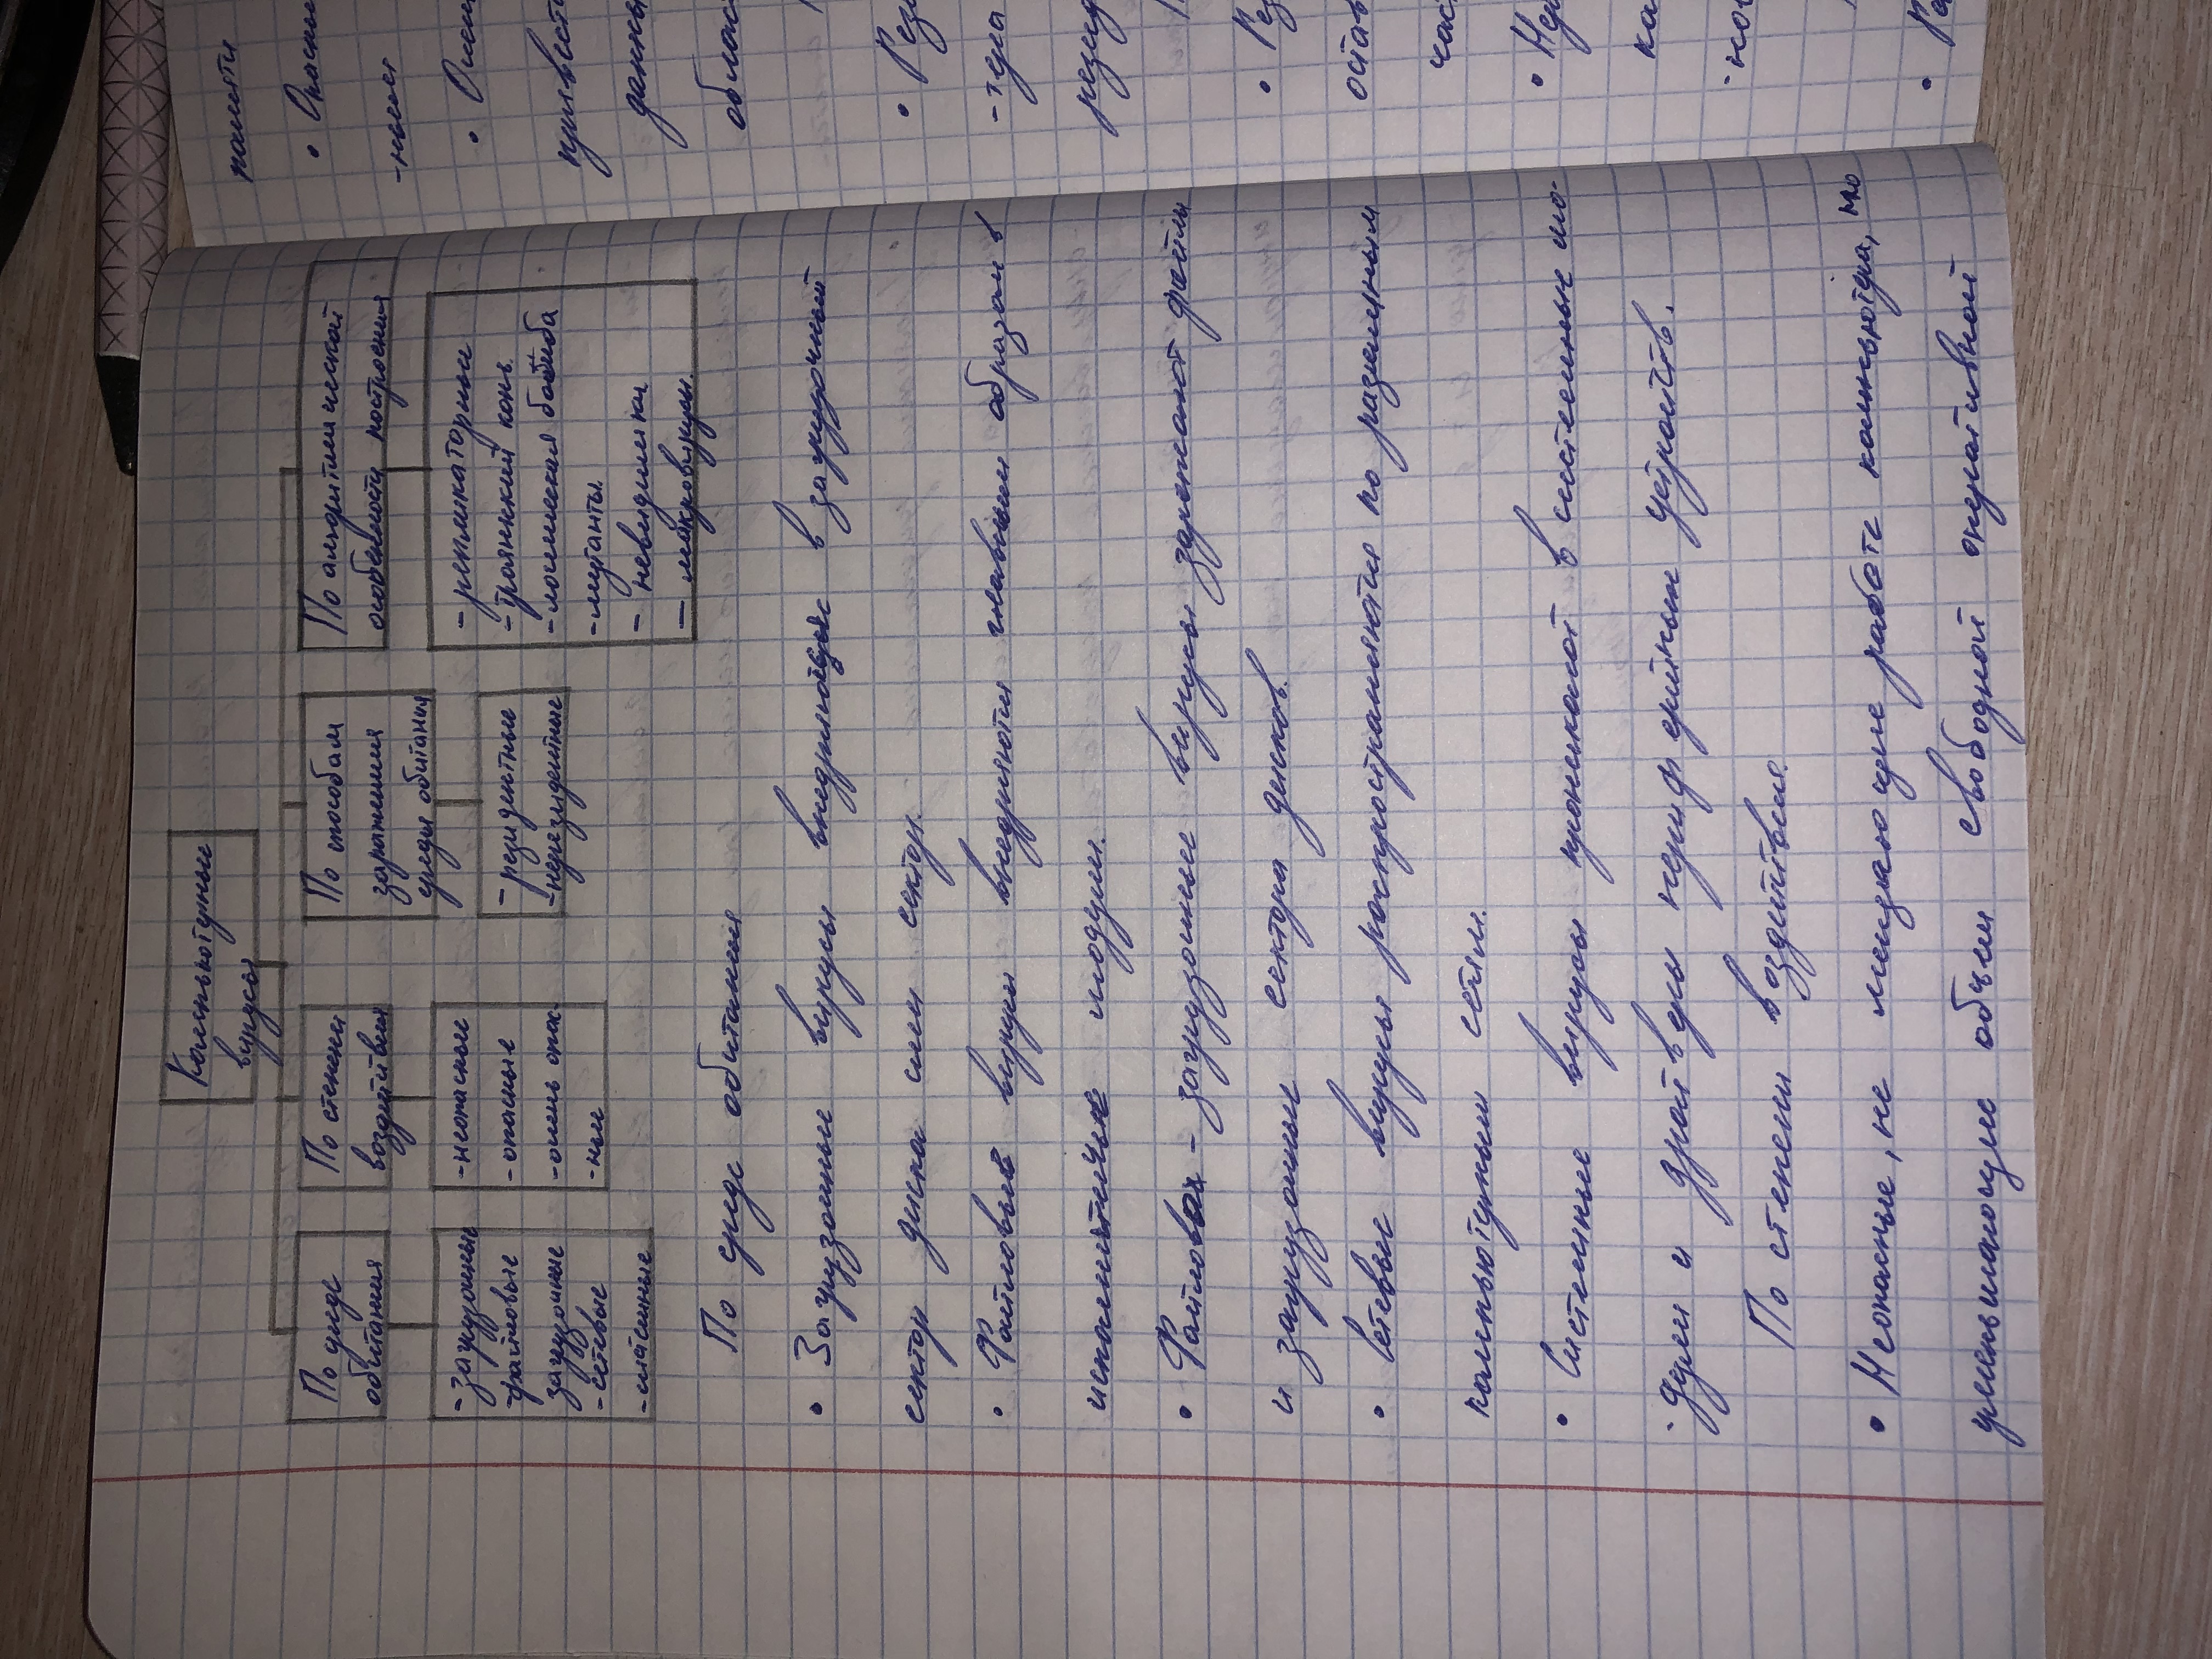 Компьютерные
вирусы
По среде
обитания
По степени
воздействия
По способам
заражения
среды обитания
По алгоритмической
особенности построения
- загрузочные
- файловые
загрузочные
- сетевые
- системные
- неопасные
- опасные
- очень опас
- ные
- резидентные
- нерезидентные
- репликаторные
- троянский конь
- логическая бомба
- мутанты
- невидимки
- макровирусы.
По среде обитания
• Загрузочные вирусы внедряются в загрузочный
сектор диска или сектор.
• Файловые вирусы внедряются главным образом в
исполнятные модули.
• Файлово - загрузочные вирусы заражают файлы
и загрузочные сектора дисков.
• Сетевые вирусы распространяются по различным
компьютерным сетям.
• Системные вирусы проникают в системные мо-
-дули и драйверы периферийных устройств.
По степени воздействия
• Неопасные, не мешающие работе компьютера, но
уменьшающие объем свободной оперативной
памяти
•
-ные
•
привести
данны
облас
• Рез
-тера
резид
• Рез
остав
час
• Не
ка
-но
• Ре